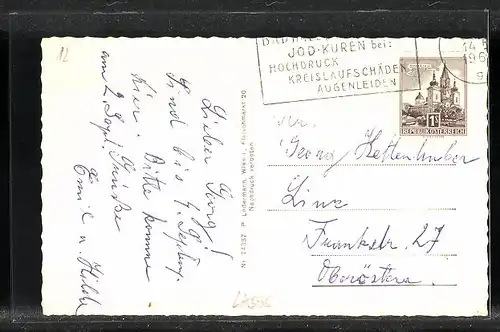 12
BAD HALL
JOD-KUREN bei:
HOCHDRUCK
KREISLAUFSCHÄDEN
AUGENLEIDEN
14
196
9
1S
REPUBLIK ÖSTERREICH
Lieber Georg!
Sind bis 9. Sept.
hier. Bitte komme
am 2. Sept. Grüße
Emil u.
P. Ledermann, Wien I, Fleischmarkt 20
Nachdruck verboten
Georg Kettenhuber
Linz
Frankstr. 27
Oberösterr.